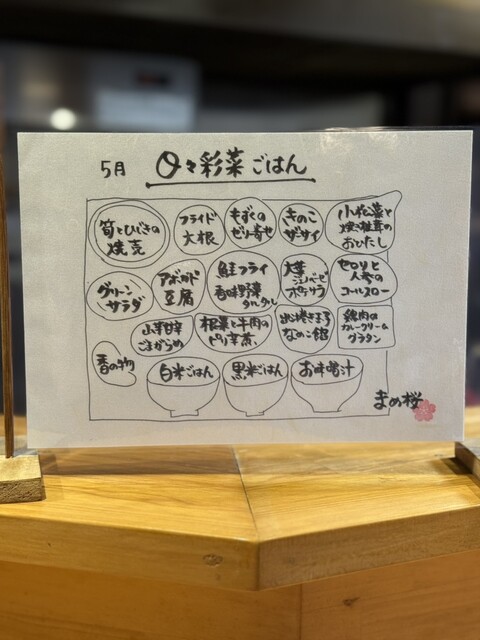 5月 日々彩菜ごはん
筍とひじきの
焼売
フライド
大根
もずくの
ゼリ寄せ
きのこ
ザーサイ
小松菜と
焼き椎茸の
おひたし
グリーン
サラダ
アボカド
豆腐
鮭フライ
香味野菜
タルタル
大葉
ジェノベーゼ
ポテサラ
セロリと
人参の
コールスロー
山芋甘辛
ごまがらめ
根菜と牛肉の
ピリ辛煮
出し巻き玉子
なめこ餡
鶏肉の
カレークリーム
グラタン
香の物
白米ごはん
黒米ごはん
お味噌汁
まめ桜